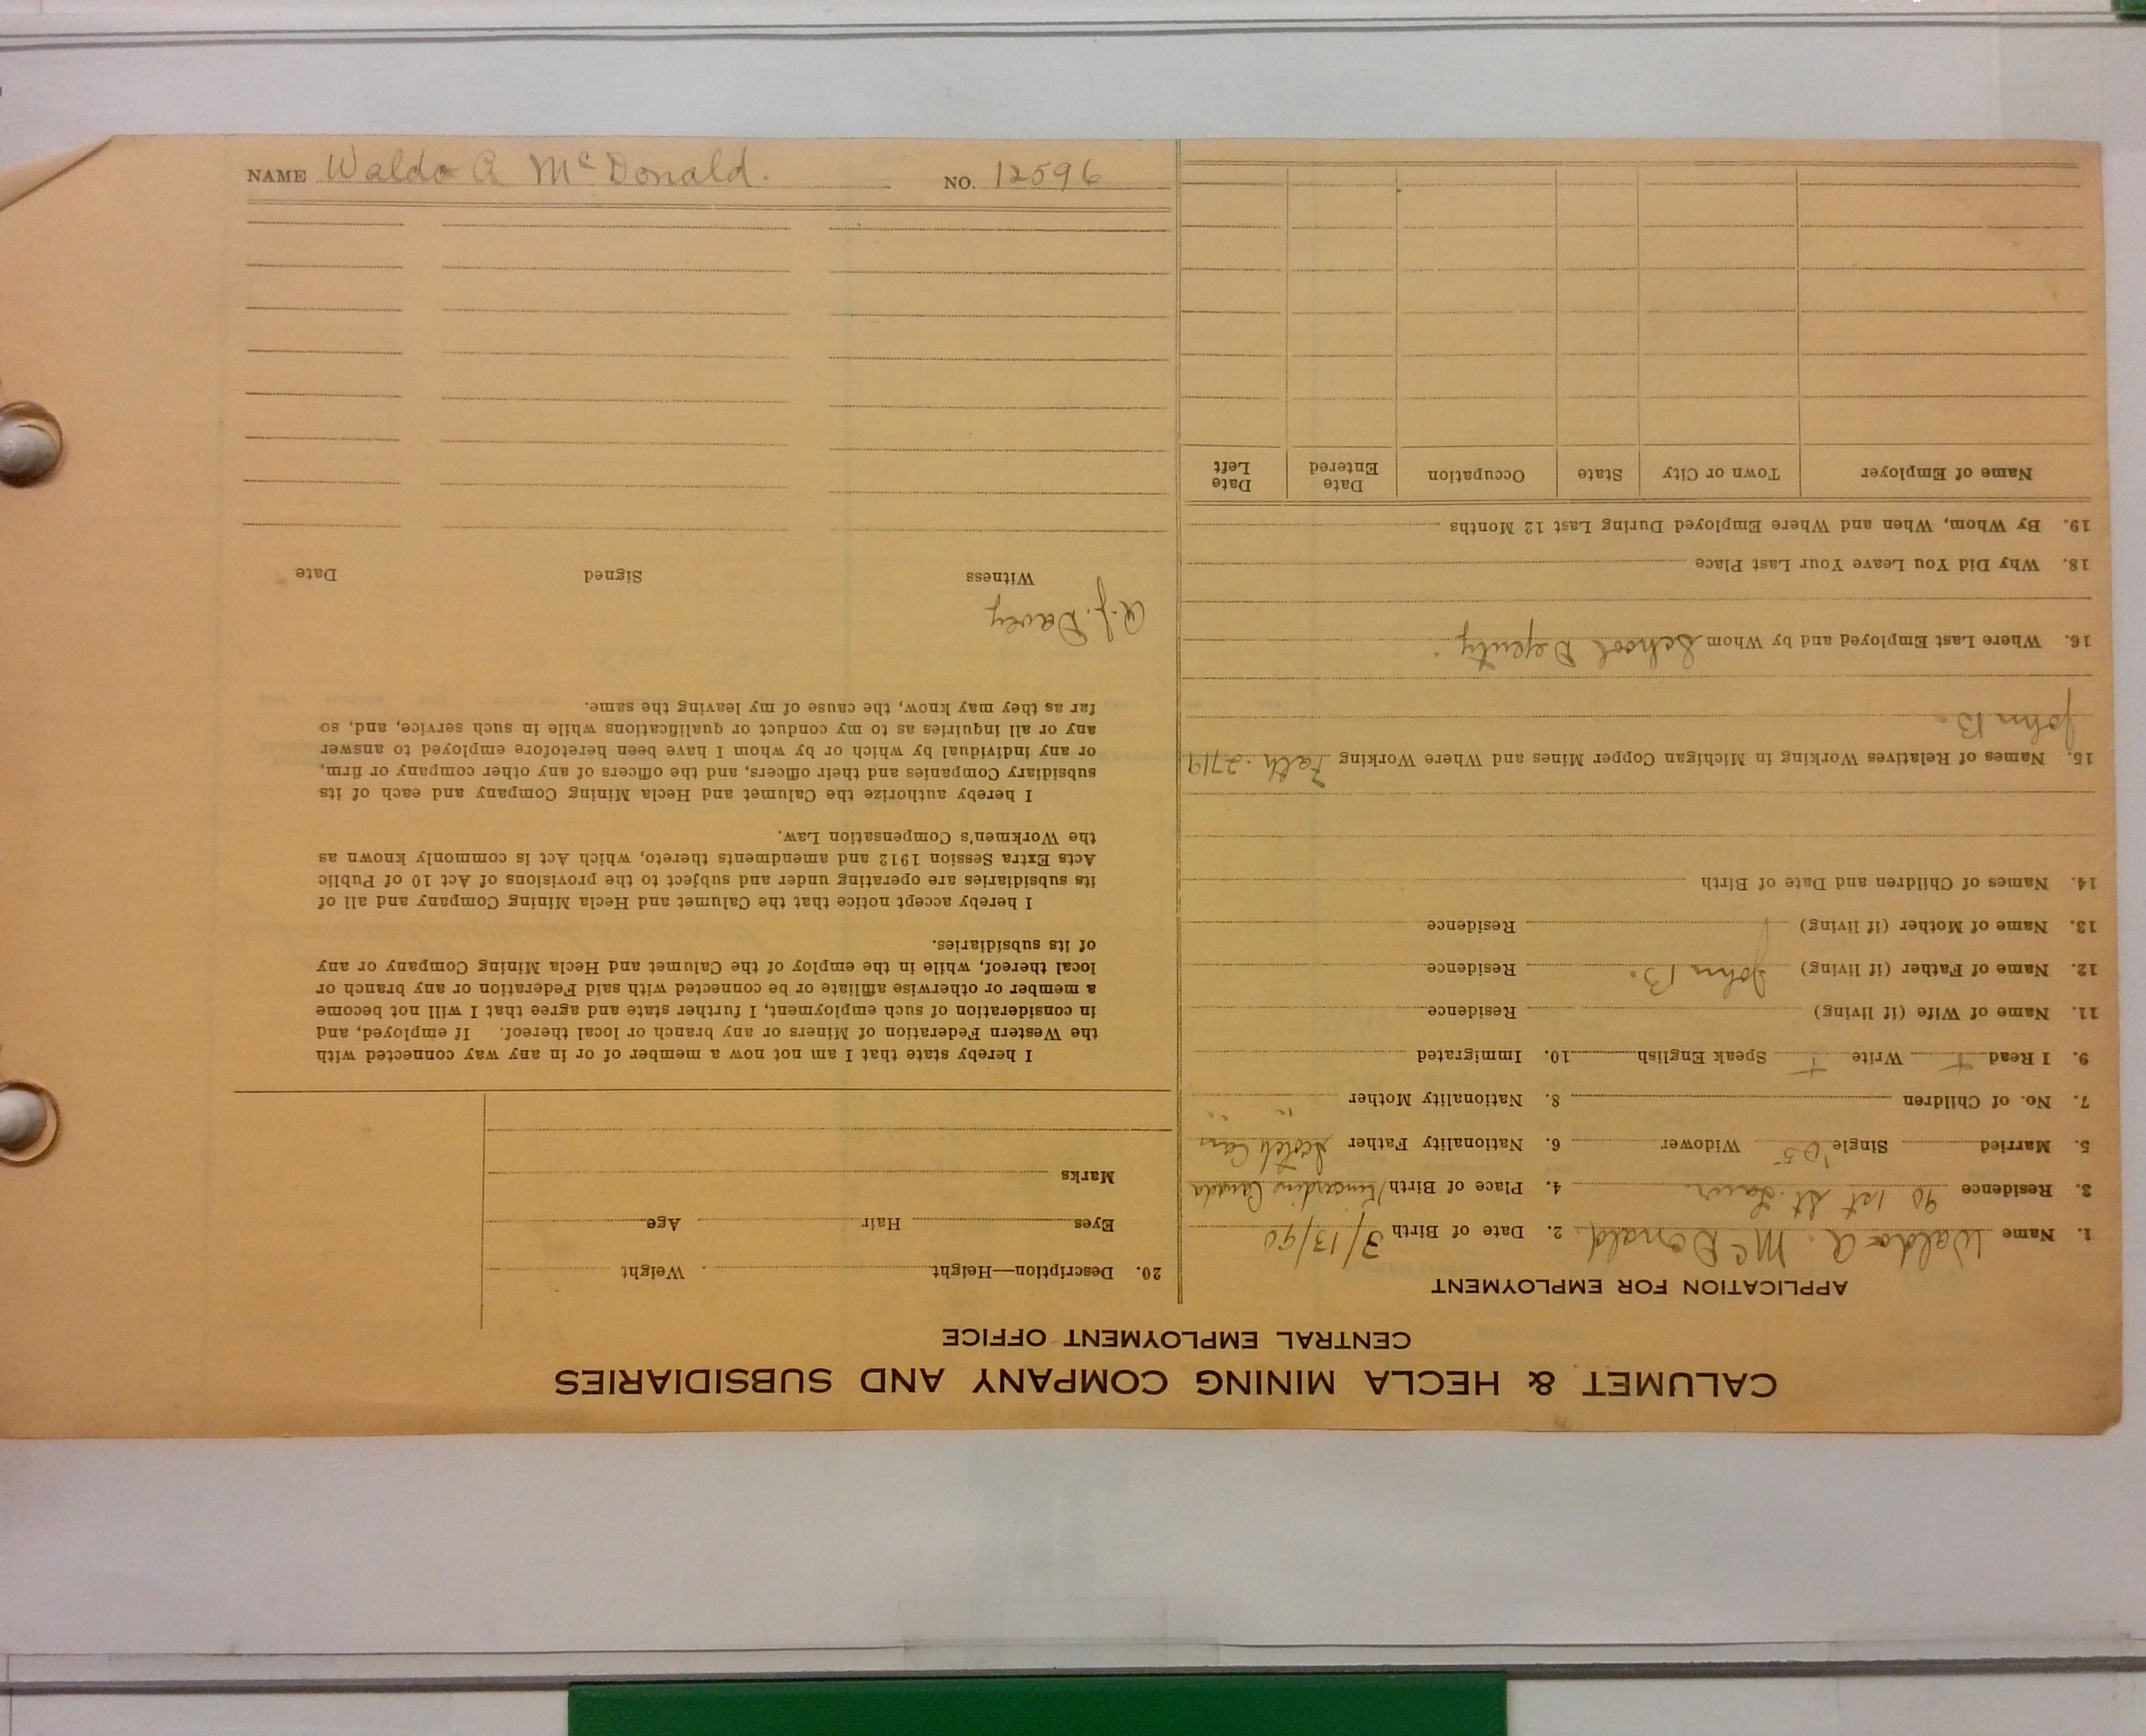 CALUMET & HECLA MINING COMPANY AND SUBSIDIARIES
CENTRAL EMPLOYMENT OFFICE
APPLICATION FOR EMPLOYMENT
1. Name Waldo A. McDonald 2. Date of Birth 3/13/90
3. Residence 90 1st St. 4. Place of Birth Kincardine Canada
5. Married Single '05 Widower 6. Nationality Father Scotch Can
7. No. of Children 8. Nationality Mother " "
9. I Read + Write + Speak English 10. Immigrated
11. Name of Wife (if living) Residence
12. Name of Father (if living) John B. Residence
13. Name of Mother (if living) Residence
14. Names of Children and Date of Birth
15. Names of Relatives Working in Michigan Copper Mines and Where Working Fath. 2719
John B.
16. Where Last Employed and by Whom School Deputy
18. Why Did You Leave Your Last Place
19. By Whom, When and Where Employed During Last 12 Months
Name of Employer Town or City State Occupation Date Entered Date Left
20. Description—Height Weight
Eyes Hair Age
Marks
I hereby state that I am not now a member of or in any way connected with
the Western Federation of Miners or any branch or local thereof. If employed, and
in consideration of such employment, I further state and agree that I will not become
a member or otherwise affiliate or be connected with said Federation or any branch or
local thereof, while in the employ of the Calumet and Hecla Mining Company or any
of its subsidiaries.
I hereby accept notice that the Calumet and Hecla Mining Company and all of
its subsidiaries are operating under and subject to the provisions of Act 10 of Public
Acts Extra Session 1912 and amendments thereto, which Act is commonly known as
the Workmen's Compensation Law.
I hereby authorize the Calumet and Hecla Mining Company and each of its
subsidiary Companies and their officers, and the officers of any other company or firm,
or any individual by which or by whom I have been heretofore employed to answer
any or all inquiries as to my conduct or qualifications while in such service, and, so
far as they may know, the cause of my leaving the same.
A. J. Davey
Witness Signed Date
NAME Waldo A McDonald. NO. 12596